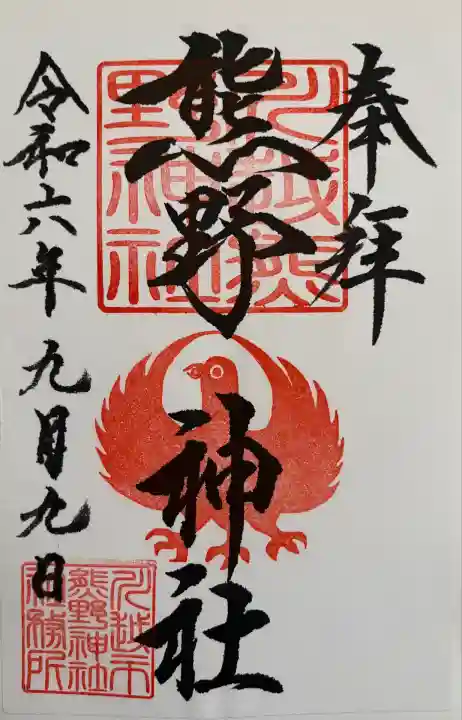 奉拝
熊野神社
川越熊野神社
令和六年九月九日
川越市熊野神社社務所